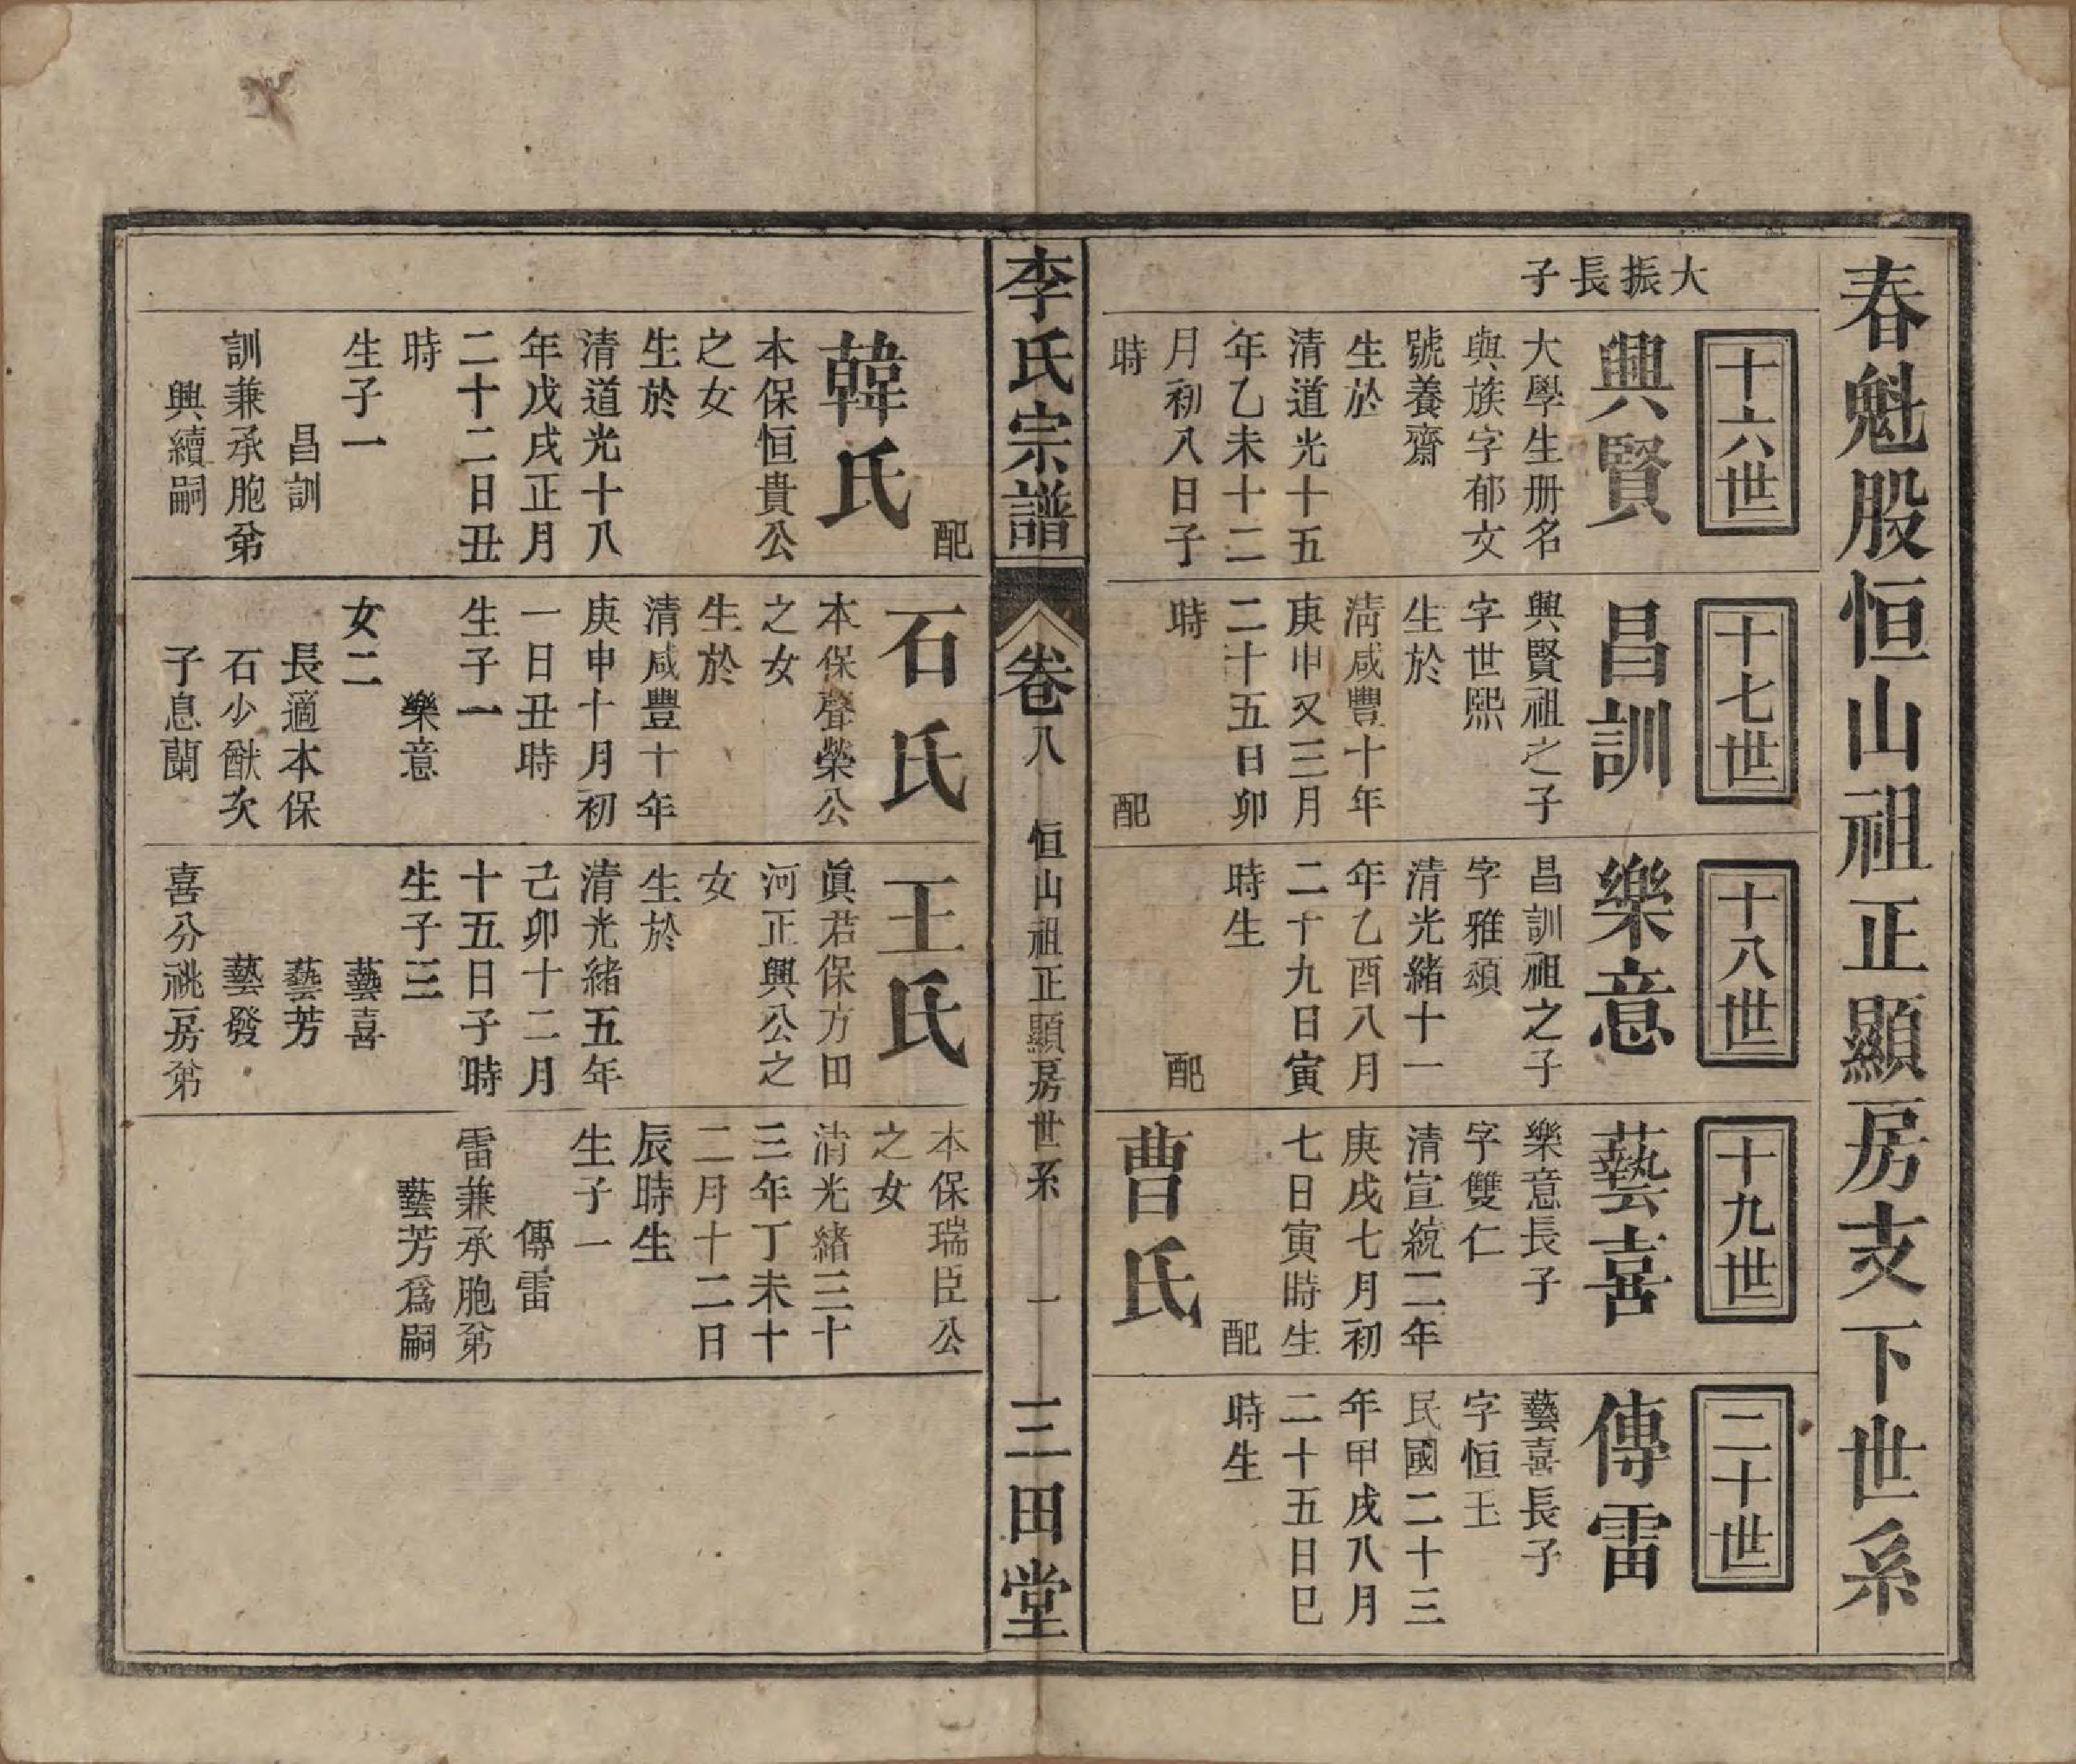 春魁股恒山祖正顯房支下世系
大振長子
十六世
興賢
大學生册名
與族字郁女
號養齋
生於
清道光十五
年乙未十二
月初八日子
時
配
韓氏
本保恒貴公
之女
生於
清道光十八
年戊戌正月
二十二日丑
時
生子一
昌訓
訓兼承胞弟
興續嗣
十七世
昌訓
興賢祖之子
字世熙
生於
淸咸豐十年
庚申又三月
二十五日卯
時
配
石氏
本保聲榮公
之女
生於
清咸豐十年
庚申十月初
一日丑時
生子一
樂意
女二
長適本保
石少猷次
子息蘭
十八世
樂意
昌訓祖之子
字雅頌
清光緒十一
年乙酉八月
二十九日寅
時生
配
王氏
眞君保方田
河正興公之
女
生於
清光緒五年
己卯十二月
十五日子時
生子三
藝喜
藝芳
藝發
喜分祧房弟
十九世
藝喜
樂意長子
字雙仁
清宣統二年
庚戌七月初
七日寅時生
配
曹氏
本保瑞臣公
之女
清光緒三十
三年丁未十
二月十二日
辰時生
生子一
傳雷
雷兼承胞弟
藝芳爲嗣
二十世
傳雷
藝喜長子
字恒玉
民國二十三
年甲戌八月
二十五日巳
時生
李氏宗譜
卷八 恒山祖正顯房世系 一
三田堂